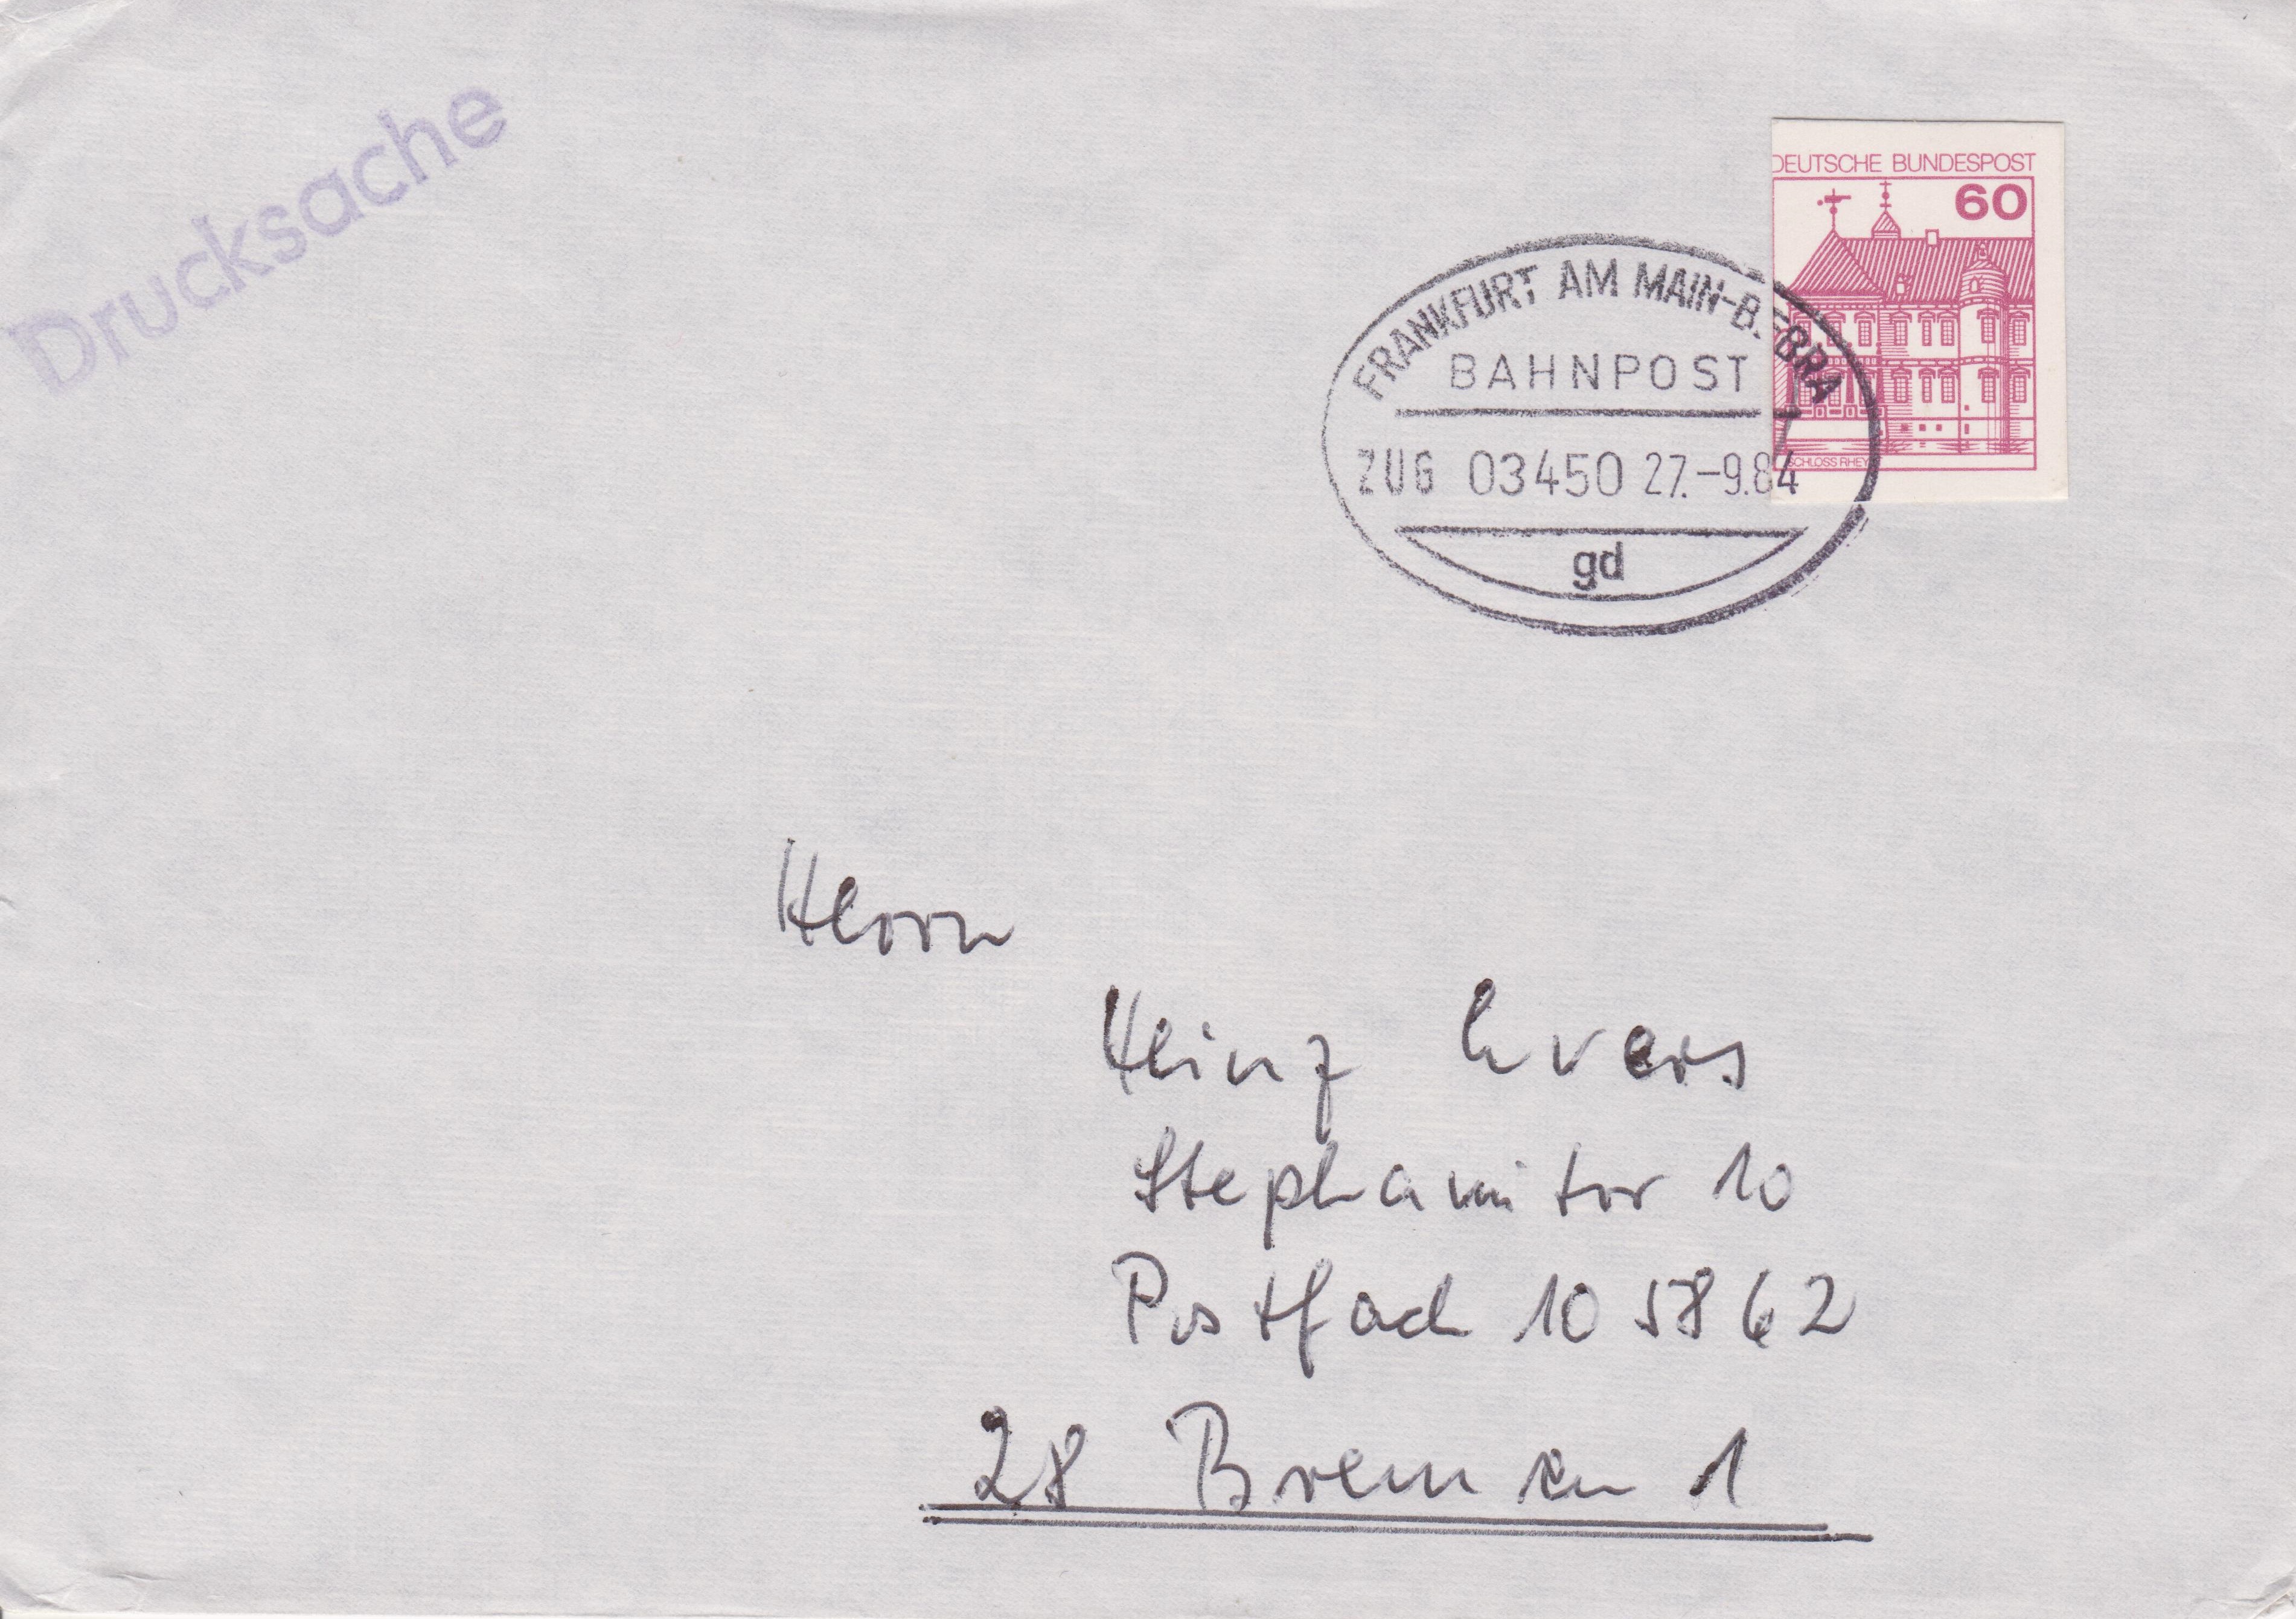 Drucksache
DEUTSCHE BUNDESPOST
60
SCHLOSS RHEY
FRANKFURT AM MAIN-BEBRA
BAHNPOST
ZUG 03450 27.-9.84
gd
Herrn
Heinz Evers
Stephanitor 10
Postfach 10 5862
28 Bremen 1